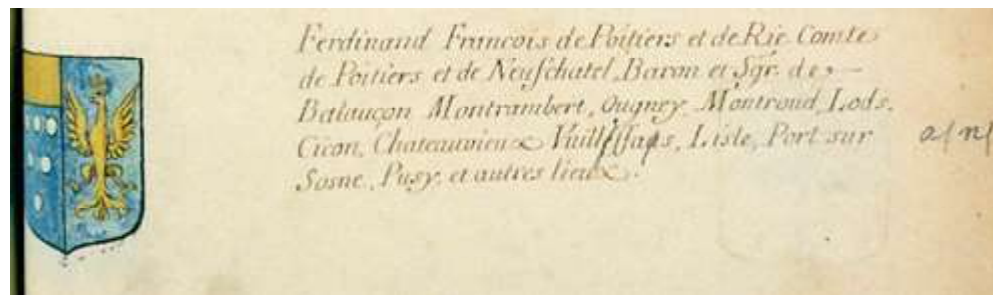 Ferdinand Francois de Poitiers et de Rie Comte
de Poitiers et de Neufchatel, Baron et Sgr. de
Balançon Montrambert, Ougney, Montroud, Lods,
Cicon, Chateauvieux Lisle, Port sur
Sosne, Pusy, et autres lieux.